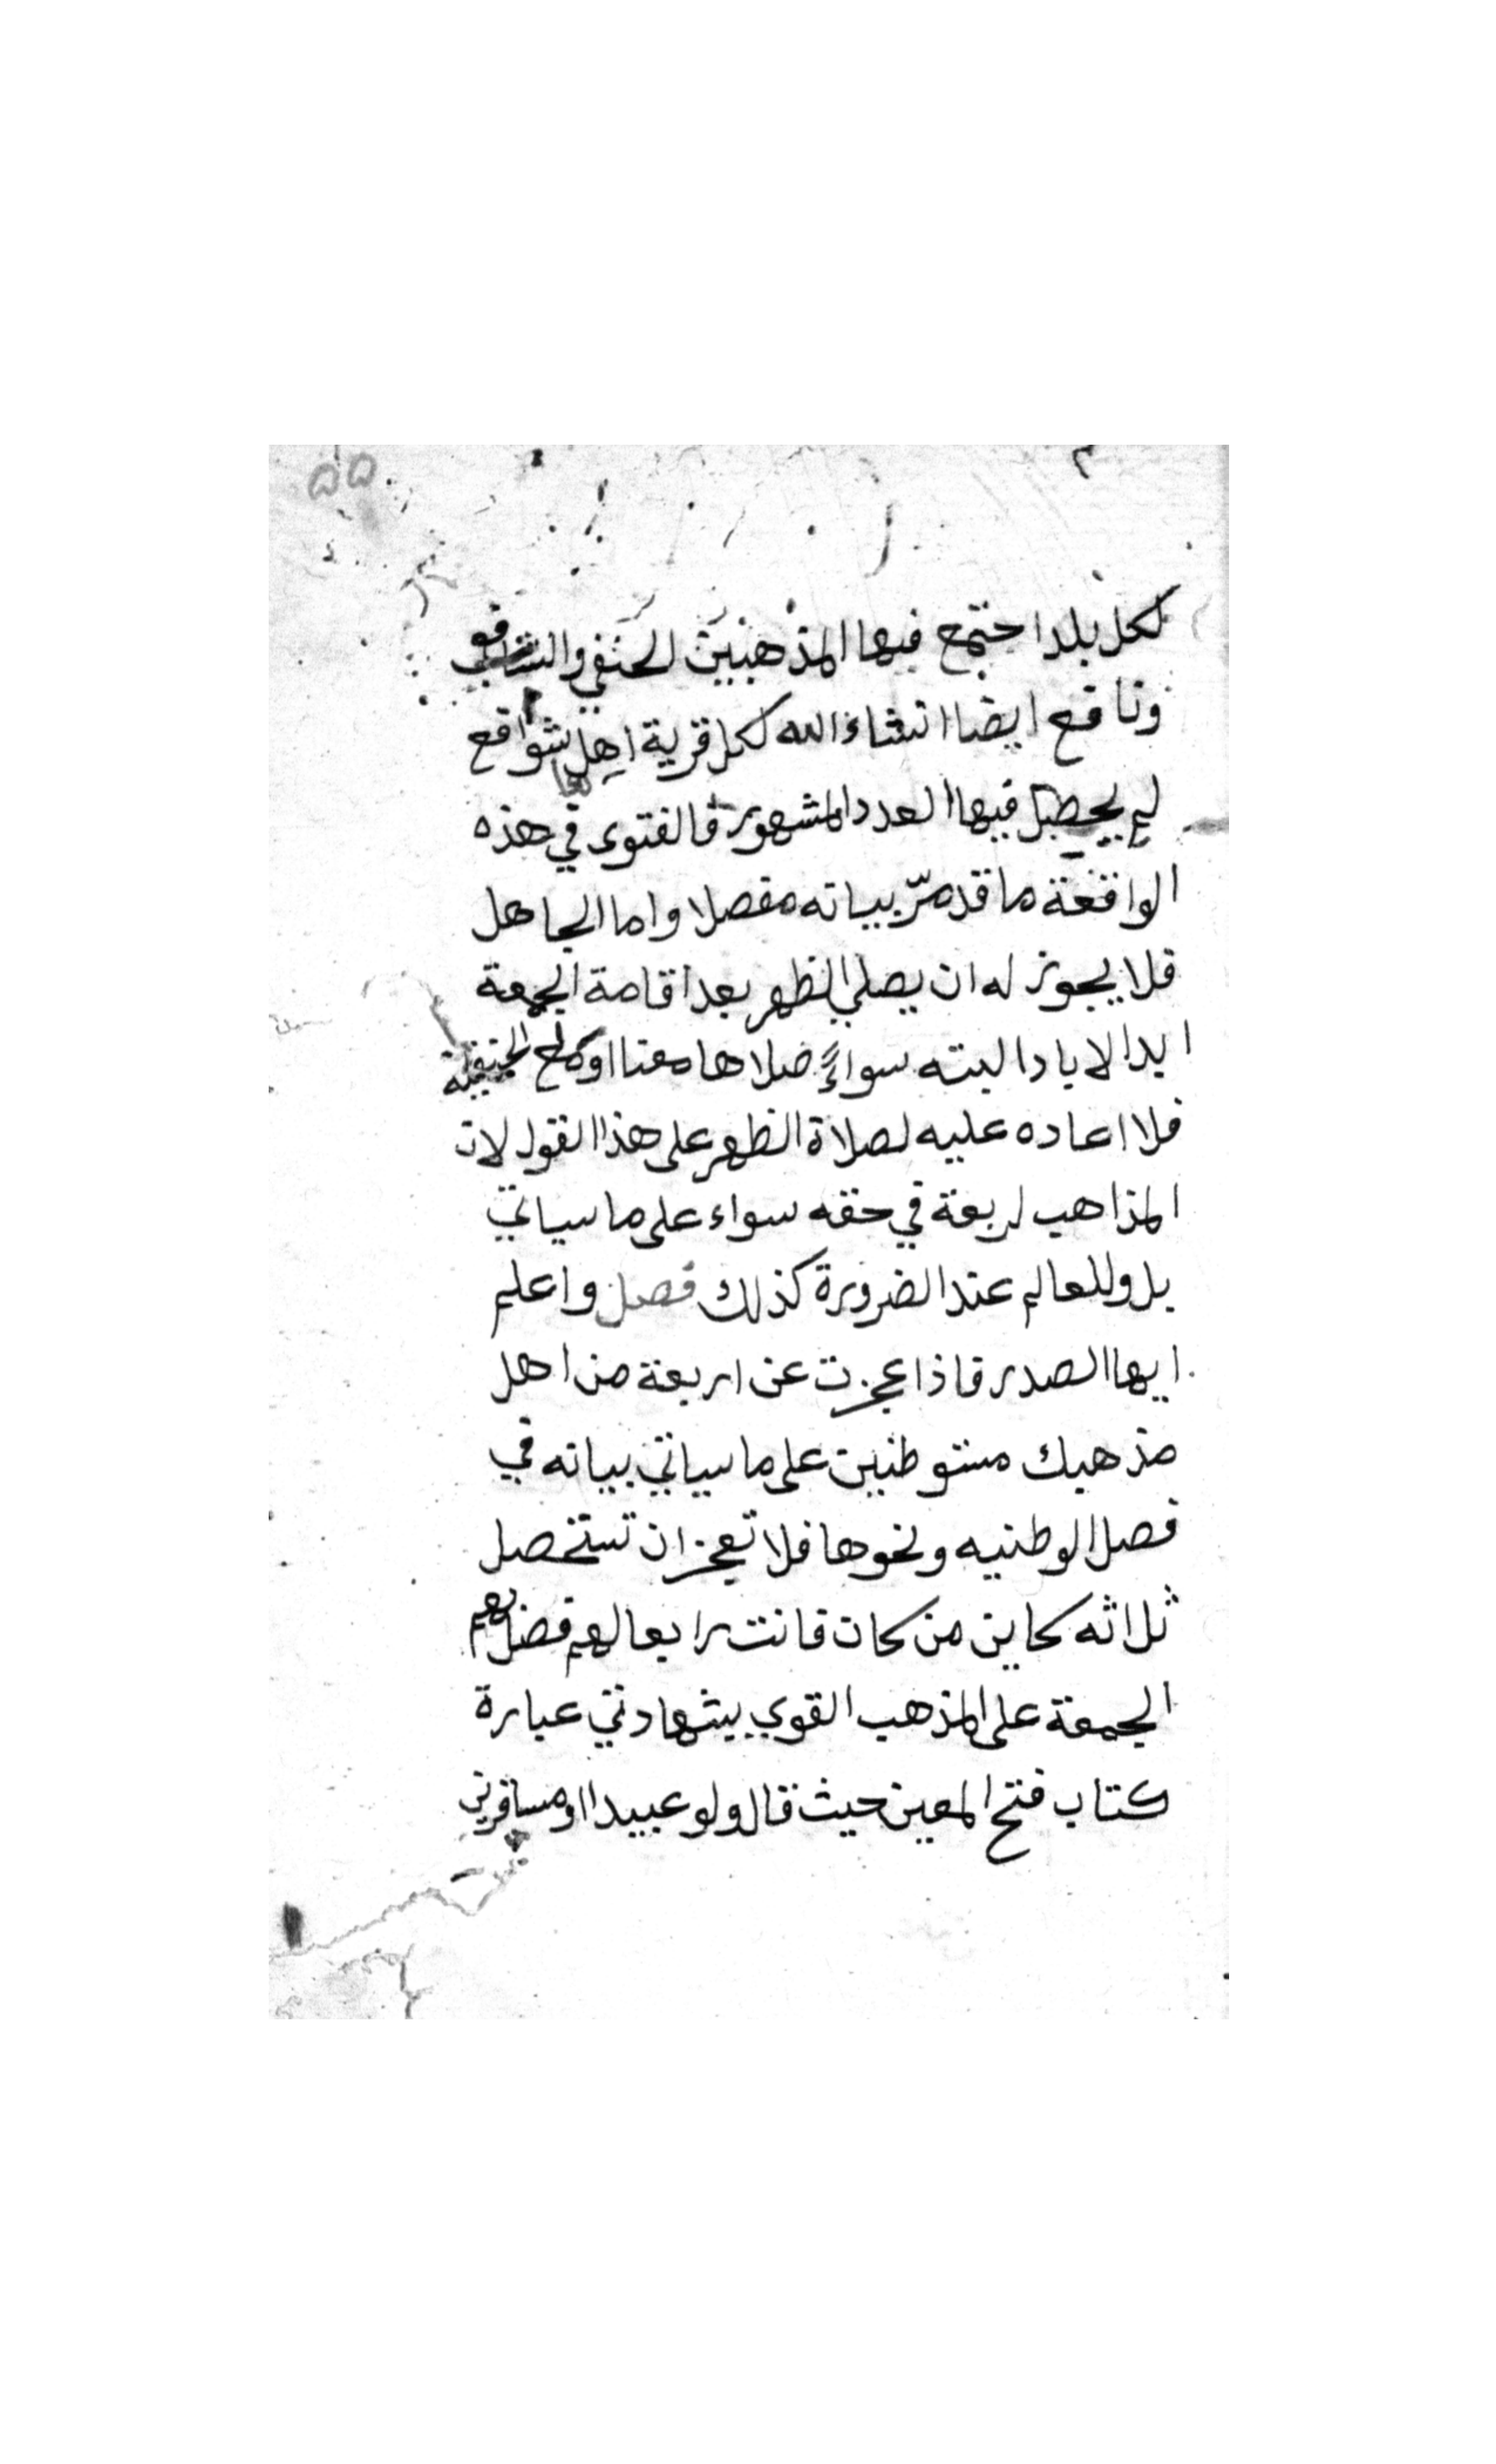 ٥٥
لكل بلد اجتمع فيها المذهبين الحنفي والشافعي
ونافع ايضا انشاء الله لكل قرية اهل شوافع
لم يحصل فيها العدد المشهور فالفتوى في هذه
الواقعة ما قد مرّ بيانه مفصلا واما الجاهل
فلا يجوز له ان يصلي الظهر بعد اقامة الجمعة
ابدا لاباد البته سواءً صلاها معنا او مع الحنيفية
فلا اعاده عليه لصلاة الظهر على هذا القول لان
المذاهب لربعة في حقه سواء على ما سياتي
بل وللعالم عند الضرورة كذلك فصل واعلم
ايها الصدر فاذا عجزت عن اربعة من اهل
مذهبك مستوطنين على ما سياتي بيانه في
فصل الوطنيه ونحوها فلا تعجز ان تستحصل
ثلاثه كاين من كان فانت رابعا لهم فصل بهم
الجمعة على المذهب القوي بيشهادتي عبارة
كتاب فتح المعين حيث قال ولو عبيدا او مسافرين